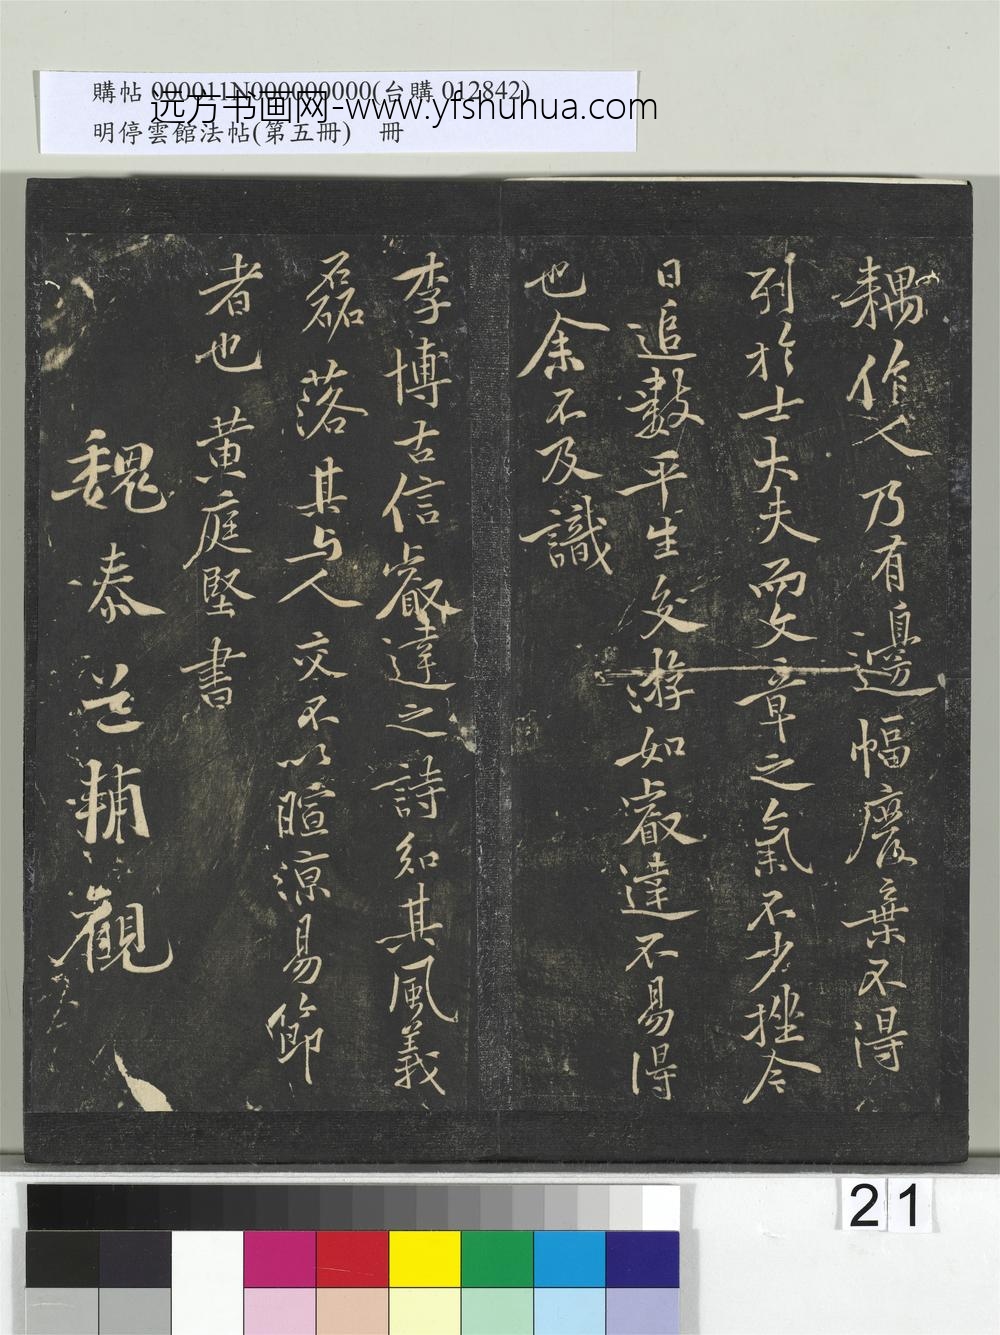 購帖 000011N000000000(台購 012842)
远方书画网-www.yfshuhua.com
明停雲館法帖(第五冊) 冊
耦作人乃有邊幅廢棄不得
列於士大夫而文章之氣不少挫今
日追數平生交游如叡達不易得
也余不及識
李博古信叡達之詩知其風義
磊落其与人交不以暄涼易節
者也 黄庭堅書
魏泰道輔觀
21